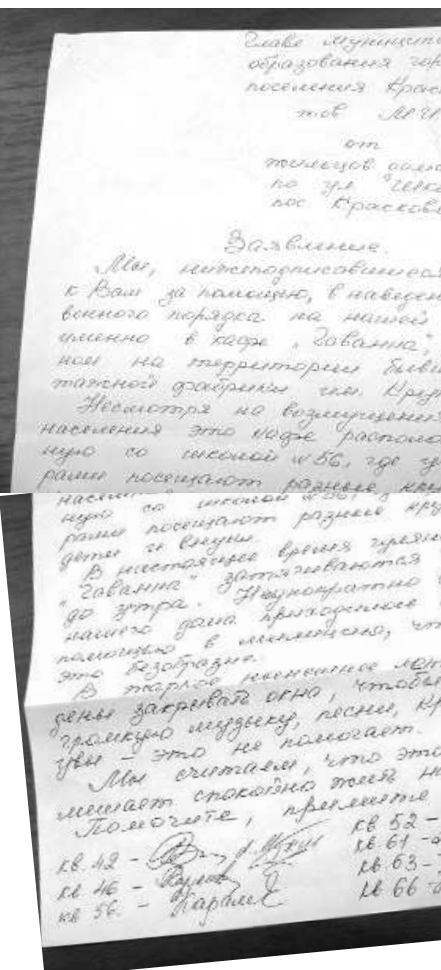 Главе муницип
образования гор
поселения Краск
тов
от
жильцов дома
по ул
пос Красково
Заявление.
Мы, нижеподписавшиеся
к Вам за помощью, в наведен
венного порядка на нашей
именно в кафе "Гаванна",
ном на территории бывш
тажной фабрики им. Круп
Несмотря на возмущения
населения это кафе располо
ную со школой №56, где уч
рами посещают разные кру
населения
ную со школой №56, г
рами посещают разные кру
дети и внуки.
В настоящее время гулян
"Гаванна" затягиваются
до утра. Неоднократно
нашего дома
помощью в милицию, чт
это безобразие.
В жаркое нынешнее лет
дены закрывать окна, чтобы
громкую музыку, песни, кр
увы - это не помогает.
Мы считаем, что это
мешает спокойно жить
Помогите, примите
кв. 42 -
кв 46 -
кв 56. -
кв 52 -
кв 61 -
кв 63 -
кв 66 -